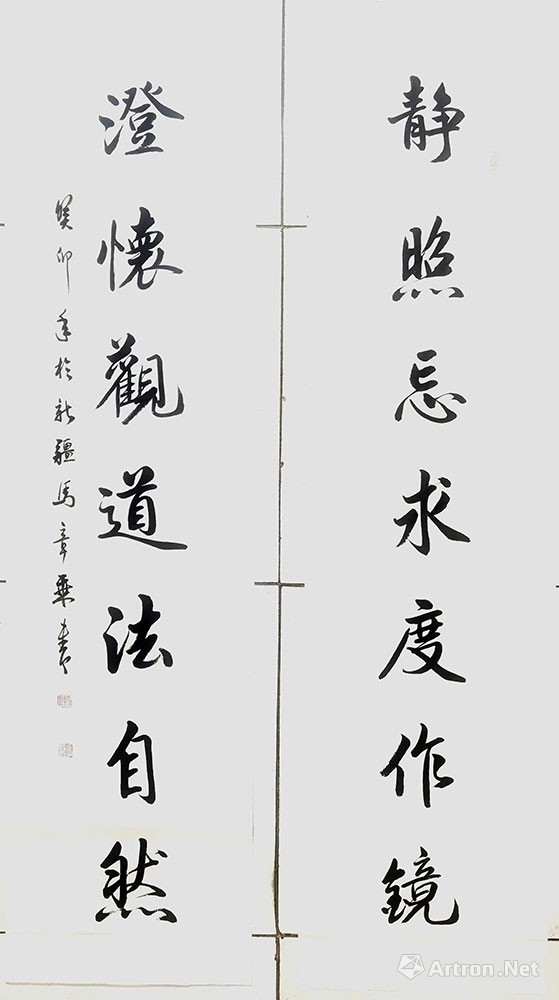 静照忘求度作鏡
澄懷觀道法自然
癸卯年於新疆馬章乘書
Artron.Net